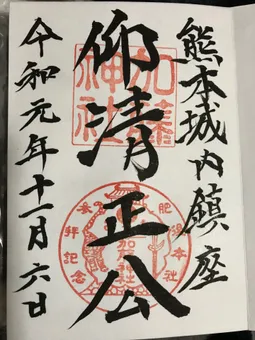 熊本城内鎮座
仰清正公
令和元年十一月六日
加藤神社
加藤神社
参拝記念